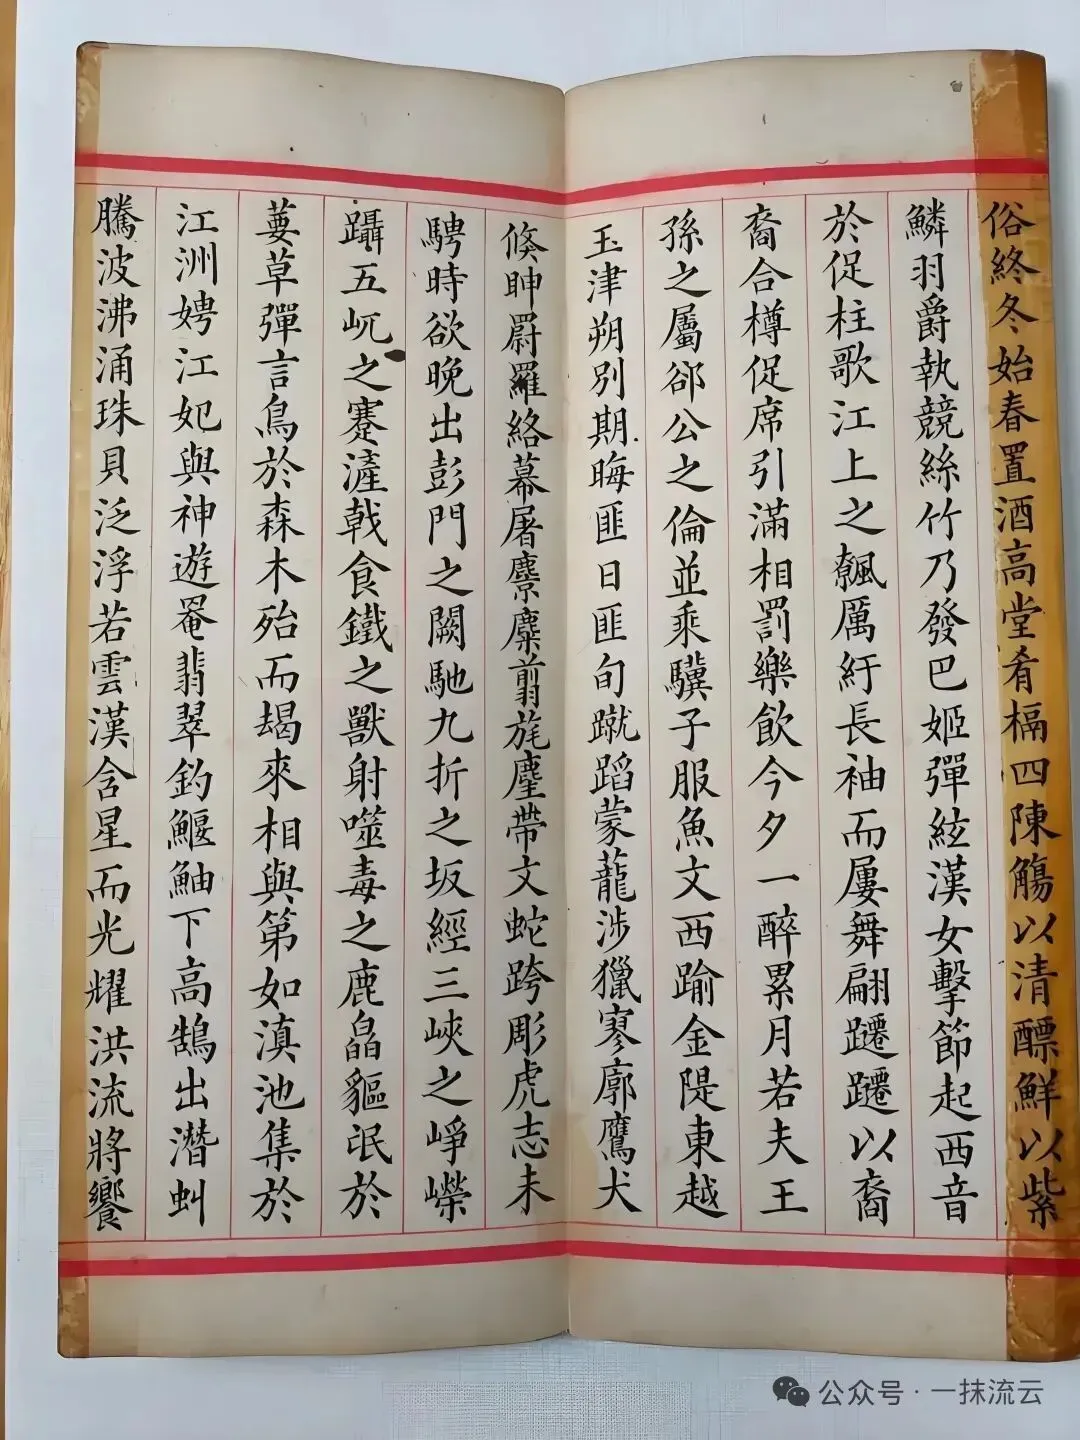 俗終冬始春置酒高堂肴槅四陳觴以清醥鮮以紫
鱗羽爵執競絲竹乃發巴姬彈絃漢女擊節起西音
於促柱歌江上之飉厲紆長袖而屢舞翩躚躚以裔
裔合樽促席引滿相罰樂飲今夕一醉累月若夫王
孫之屬郤公之倫並乘驥子服魚文西踰金隄東越
玉津朔別期晦匪日匪旬蹴蹈蒙蘢涉獵寥廓鷹犬
倏眒罻羅絡幕屠麖麋翦旄麈帶文蛇跨彫虎志未
騁時欲晚出彭門之闕馳九折之坂經三峽之崢嶸
躡五屼之蹇滻戟食鐵之獸射噬毒之鹿皛貙氓於
葽草彈言鳥於森木殆而朅來相與第如滇池集於
江洲娉江妃與神遊罨翡翠釣鰋鮋下高鵠出潛虯
騰波沸涌珠貝泛浮若雲漢含星而光耀洪流將饗
公众号·一抹流云